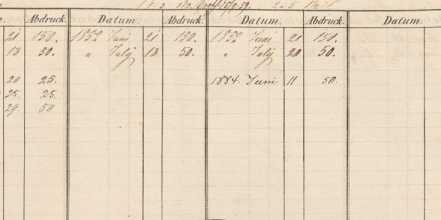 Abdruck. Datum. Abdruck. Datum. Abdruck. Datum.
21 150. 1852 Juni 21 150. 1852 Juni 21 150.
13 50. " July 13 50. " July 20 50.
20 25. 1884. Juni 11 50.
25. 25.
29. 50